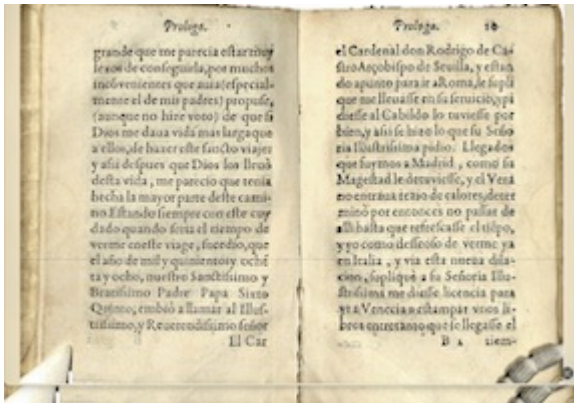 Prologo.
grande que me parecia estar muy
lexos de conseguirla, por muchos
inconuenientes que auia (especial-
mente el de mis padres) propuse,
(aunque no hize voto) de que si
Dios me daua vida mas larga que
a ellos, de hazer este sancto viaje:
y assi despues que Dios los lleuò
desta vida, me parecio que tenia
hecha la mayor parte deste cami-
no. Estando siempre con este cuy
dado quando seria el tiempo de
verme en este viage, sucedio, que
el año de mil y quinientos y ochẽ
ta y ocho, nuestro Sanctissimo y
Beatissimo Padre Papa Sixto
Quinto, embiò a llamar al Illus-
trissimo, y Reuerendissimo señor
El Car
Prologo. 10
el Cardenal don Rodrigo de Ca-
stro Arçobispo de Seuilla, y estan
do a punto para ir a Roma, le supli
que me lleuasse en su seruicio, y pi
diesse al Cabildo lo tuuiesse por
bien, y assi se hizo lo que su Seño
ria Illustrissima pidio. Llegados
que fuymos a Madrid, como su
Magestad le detuuiesse, y el Vera
no entraua te de calores, deter
minò por entonces no passar de
alli hasta que refrescasse el tiẽpo,
y yo como desseoso de verme ya
en Italia, y via esta nueua dila-
cion, supliquè a su Señoria Illu-
strissima me diesse licencia para
yr a Venecia a estampar vnos li-
bros entretanto que se llegasse el
B 2 tiem-